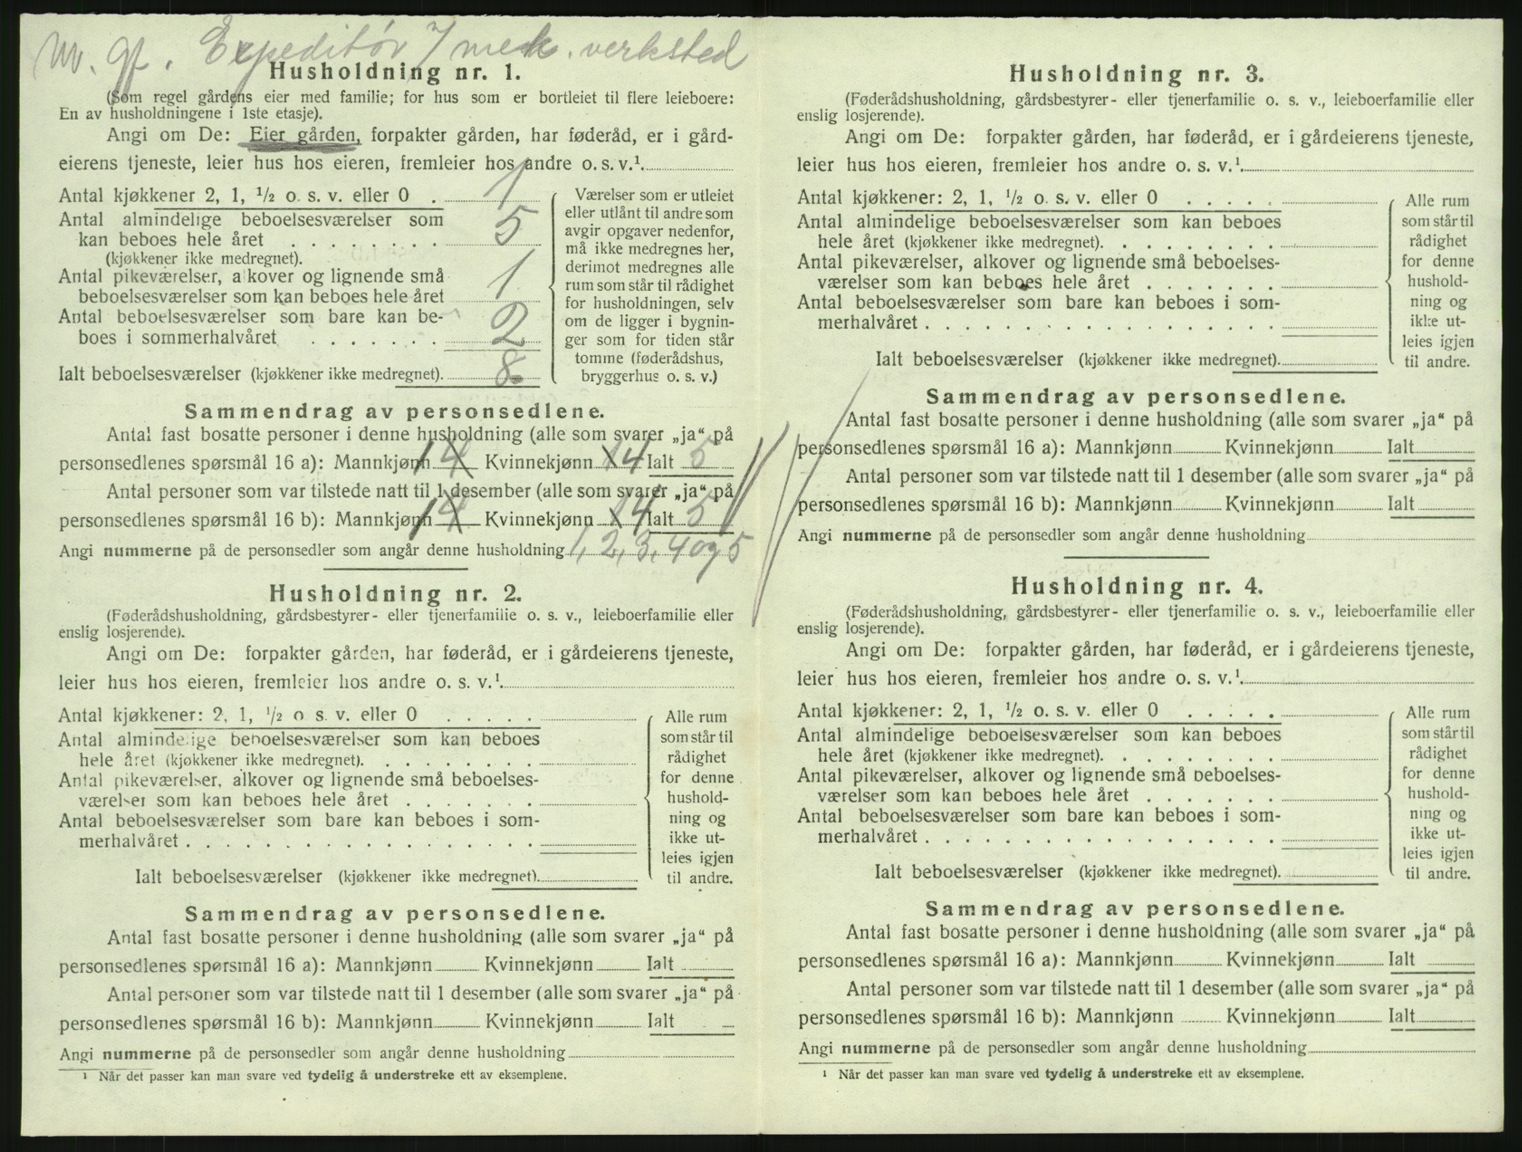 M. gf. Expeditør v/ mek. verksted
Husholdning nr. 1.
(Som regel gårdens eier med familie; for hus som er bortleiet til flere leieboere:
En av husholdningene i 1ste etasje).
Angi om De: Eier gården, forpakter gården, har føderåd, er i gård-
eierens tjeneste, leier hus hos eieren, fremleier hos andre o. s. v.¹
Antal kjøkkener 2, 1, ½ o. s. v. eller 0 . 1
Antal almindelige beboelsesværelser som
kan beboes hele året . . . . . . . . 5
(kjøkkener ikke medregnet).
Antal pikeværelser, alkover og lignende små
beboelsesværelser som kan beboes hele året 1
Antal beboelsesværelser som bare kan be-
boes i sommerhalvåret . . . . . . . 2
Ialt beboelsesværelser (kjøkkener ikke medregnet). 8
Værelser som er utleiet
eller utlånt til andre som
avgir opgaver nedenfor,
må ikke medregnes her,
derimot medregnes alle
rum som står til rådighet
for husholdningen, selv
om de ligger i bygnin-
ger som for tiden står
tomme (føderådshus,
bryggerhus o. s. v.)
Sammendrag av personsedlene.
Antal fast bosatte personer i denne husholdning (alle som svarer „ja“ på
personsedlenes spørsmål 16 a): Mannkjønn 1 4 Kvinnekjønn 1 4 Ialt 5
Antal personer som var tilstede natt til 1 desember (alle som svarer „ja“ på
personsedlenes spørsmål 16 b): Mannkjønn 1 4 Kvinnekjønn 1 4 Ialt 5
Angi nummerne på de personsedler som angår denne husholdning 1, 2, 3, 4 og 5
Husholdning nr. 2.
(Føderådshusholdning, gårdsbestyrer- eller tjenerfamilie o. s. v., leieboerfamilie eller
enslig losjerende).
Angi om De: forpakter gården, har føderåd, er i gårdeierens tjeneste,
leier hus hos eieren, fremleier hos andre o. s. v.¹
Antal kjøkkener: 2, 1, ½ o s. v. eller 0 . . . . .
Antal almindelige beboelsesværelser som kan beboes
hele året (kjøkkener ikke medregnet). . . . . . . . .
Antal pikeværelser, alkover og lignende små beboelses-
værelser som kan beboes hele året . . . . . . .
Antal beboelsesværelser som bare kan beboes i som-
merhalvåret . . . . . . . . . . . . . . . . . .
Ialt beboelsesværelser (kjøkkener ikke medregnet).
Alle rum
som står til
rådighet
for denne
hushold-
ning og
ikke ut-
leies igjen
til andre.
Sammendrag av personsedlene.
Antal fast bosatte personer i denne husholdning (alle som svarer „ja“ på
personsedlenes spørsmål 16 a): Mannkjønn Kvinnekjønn Ialt
Antal personer som var tilstede natt til 1 desember (alle som svarer „ja“ på
personsedlenes spørsmål 16 b): Mannkjønn Kvinnekjønn Ialt
Angi nummerne på de personsedler som angår denne husholdning
¹ Når det passer kan man svare ved tydelig å understreke ett av eksemplene.
Husholdning nr. 3.
(Føderådshusholdning, gårdsbestyrer- eller tjenerfamilie o. s. v., leieboerfamilie eller
enslig losjerende).
Angi om De: forpakter gården, har føderåd, er i gårdeierens tjeneste,
leier hus hos eieren, fremleier hos andre o. s. v.¹
Antal kjøkkener: 2, 1, ½ o. s. v. eller 0 . . . . .
Antal almindelige beboelsesværelser som kan beboes
hele året (kjøkkener ikke medregnet). . . . . . . . .
Antal pikeværelser, alkover og lignende små beboelses-
værelser som kan beboes hele året . . . . . . .
Antal beboelsesværelser som bare kan beboes i som-
merhalvåret . . . . . . . . . . . . . . . . . .
Ialt beboelsesværelser (kjøkkener ikke medregnet).
Alle rum
som står til
rådighet
for denne
hushold-
ning og
ikke ut-
leies igjen
til andre.
Sammendrag av personsedlene.
Antal fast bosatte personer i denne husholdning (alle som svarer „ja“ på
personsedlenes spørsmål 16 a): Mannkjønn Kvinnekjønn Ialt
Antal personer som var tilstede natt til 1 desember (alle som svarer „ja“ på
personsedlenes spørsmål 16 b): Mannkjønn Kvinnekjønn Ialt
Angi nummerne på de personsedler som angår denne husholdning
Husholdning nr. 4.
(Føderådshusholdning, gårdsbestyrer- eller tjenerfamilie o. s. v., leieboerfamilie eller
enslig losjerende).
Angi om De: forpakter gården, har føderåd, er i gårdeierens tjeneste,
leier hus hos eieren, fremleier hos andre o. s. v.¹
Antal kjøkkener: 2, 1, ½ o. s. v. eller 0 . . . . .
Antal almindelige beboelsesværelser som kan beboes
hele året (kjøkkener ikke medregnet). . . . . . . . .
Antal pikeværelser, alkover og lignende små beboelses-
værelser som kan beboes hele året . . . . . . .
Antal beboelsesværelser som bare kan beboes i som-
merhalvåret . . . . . . . . . . . . . . . . . .
Ialt beboelsesværelser (kjøkkener ikke medregnet).
Alle rum
som står til
rådighet
for denne
hushold-
ning og
ikke ut-
leies igjen
til andre.
Sammendrag av personsedlene.
Antal fast bosatte personer i denne husholdning (alle som svarer „ja“ på
personsedlenes spørsmål 16 a): Mannkjønn Kvinnekjønn Ialt
Antal personer som var tilstede natt til 1 desember (alle som svarer „ja“ på
personsedlenes spørsmål 16 b): Mannkjønn Kvinnekjønn Ialt
Angi nummerne på de personsedler som angår denne husholdning
¹ Når det passer kan man svare ved tydelig å understreke ett av eksemplene.